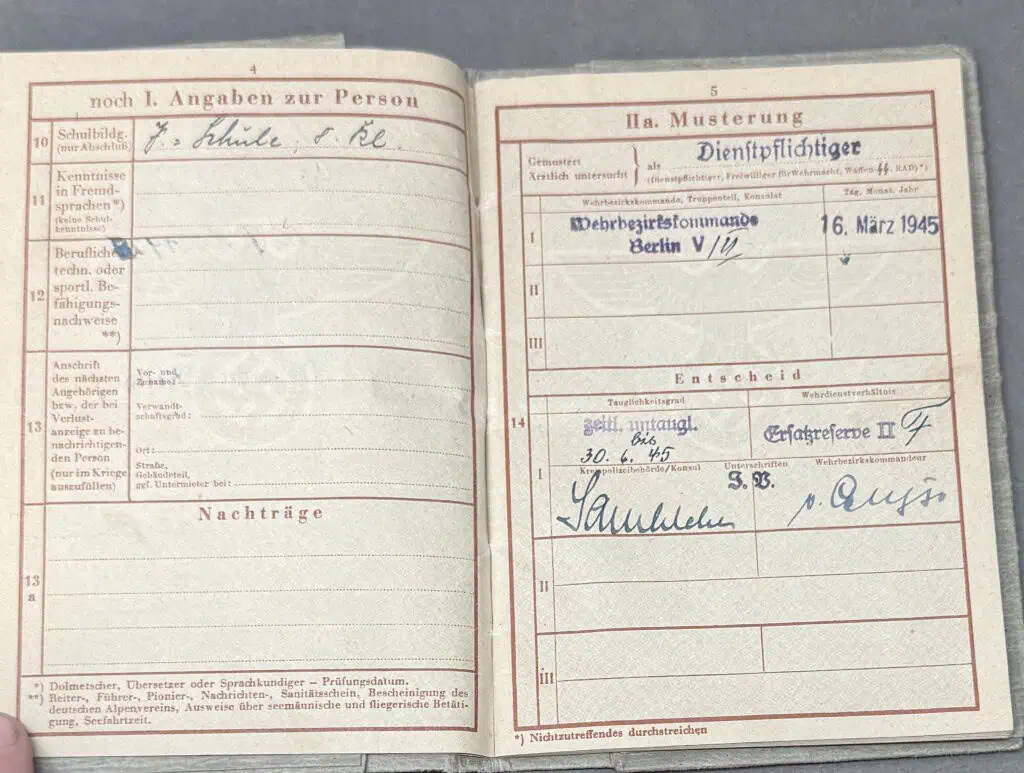 4
noch I. Angaben zur Person
10
Schulbildg.
(nur Abschluß)
Schule, 8. Kl.
11
Kenntnisse
in Fremd-
sprachen*)
(keine Schul-
kenntnisse)
12
Berufliche
techn. oder
sportl. Be-
fähigungs-
nachweise
**)
13
Anschrift
des nächsten
Angehörigen
bzw. der bei
Verlust-
anzeige zu be-
nachrichtigen-
den Person
(nur im Kriege
auszufüllen)
Vor- und
Zuname:
Verwandt-
schaftsgrad:
Ort:
Straße,
Gebäudeteil,
ggf. Untermieter bei:
Nachträge
13
a
*) Dolmetscher, Übersetzer oder Sprachkundiger – Prüfungsdatum.
**) Reiter-, Führer-, Pionier-, Nachrichten-, Sanitätsschein, Bescheinigung des
deutschen Alpenvereins, Ausweise über seemännische und fliegerische Betäti-
gung, Seefahrtzeit.
5
IIa. Musterung
Gemustert
Ärztlich untersucht
als
Dienstpflichtiger
(Dienstpflichtiger, Freiwilliger für Wehrmacht, Waffen SS, RAD)*)
Wehrbezirkskommando, Truppenteil, Konsulat
Tag, Monat, Jahr
I
Wehrbezirkskommando
Berlin V
16. März 1945
II
III
Entscheid
14
Tauglichkeitsgrad
Wehrdienstverhältnis
zeitl. untaugl.
bis
30. 6. 45
Ersatzreserve II
I
Kreispolizeibehörde/Konsul
Unterschriften
Wehrbezirkskommandeur
II
III
*) Nichtzutreffendes durchstreichen